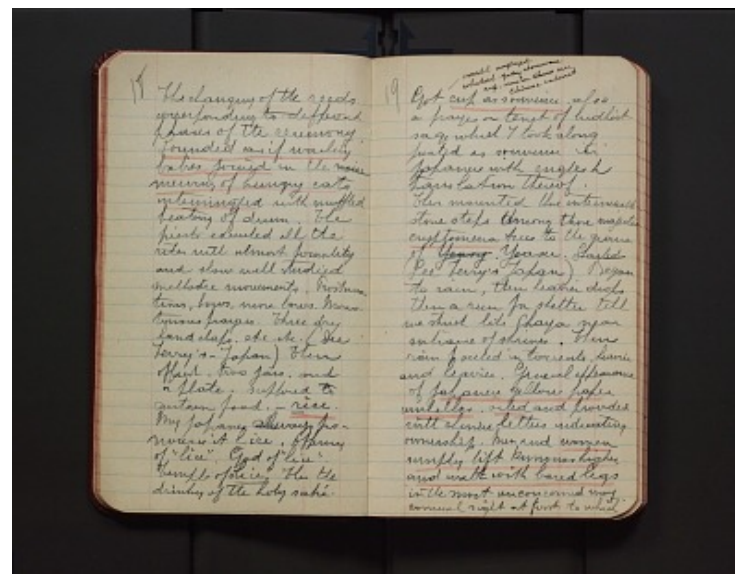 18
The changing of the reeds
corresponding to different
phases of the ceremony
sounded as if wailing
babes joined in the
meowing of hungry cats
intermingled with muffled
beating of drum. The
priests executed all the
rites with utmost formality
and slow well studied
methodic movements.
tions, bows, more bows. Mono-
tonous prayers. Three dry
hand claps, etc. etc. (See
Terry's - Japan) Then
offert. two jars. and
a plate. supposed to
contain food. - rice.
My Japanese always pro-
nounces it lice, offering
of "lice". God of "lice"
Temple of "lice". Then the
drinking of the holy saké.
19
Got cup as souvenir. also
a prayer or tenet of budhist
sage which I took along
as souvenir. in
Japanese with english
translation thereof.
Then mounted the
stone steps among those majestic
cryptomeria trees to the grave
of Yeyasu.
(See Terry's Japan). Began
to rain, then heavier drops
then a run for shelter till
we struck little Chaya near
entrance of shrines. Then
rain poured in torrents, heavier
and heavier. General appearance
of Japanese yellow paper
umbrellas. oiled and provided
with chinese letters indicating
ownership. Men and women
simply lift kimonos higher
and walk with bared legs
in the most unconcerned way.
comical sight at first to which